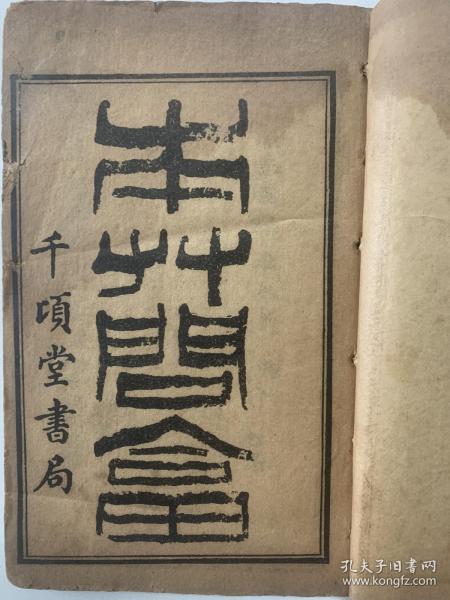 本艸問畣
千頃堂書局
孔夫子旧书网
www.kongfz.com